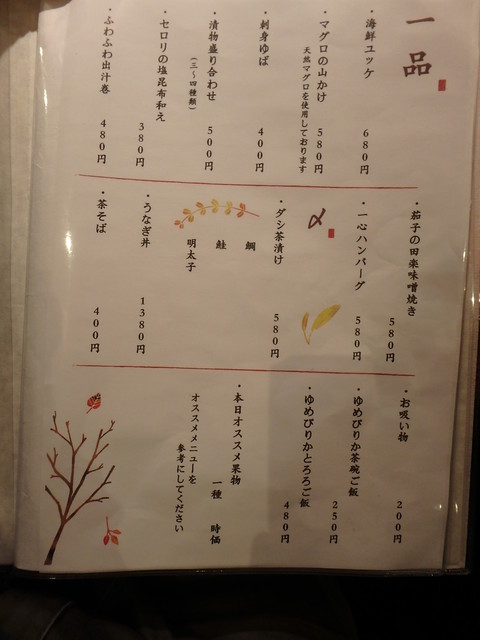 一品
・海鮮ユッケ 680円
・マグロの山かけ 580円
天然マグロを使用しております
・刺身ゆば 400円
・漬物盛り合わせ 500円
(三〜四種類)
・セロリの塩昆布和え 380円
・ふわふわ出汁巻 480円
・茄子の田楽味噌焼き 580円
・一心ハンバーグ 580円
〆
・ダシ茶漬け 580円
鯛
鮭
明太子
・うなぎ丼 1380円
・茶そば 400円
・お吸い物 200円
・ゆめぴりか茶碗ご飯 250円
・ゆめぴりかとろろご飯 480円
・本日オススメ果物 一種 時価
オススメメニューを
参考にしてください